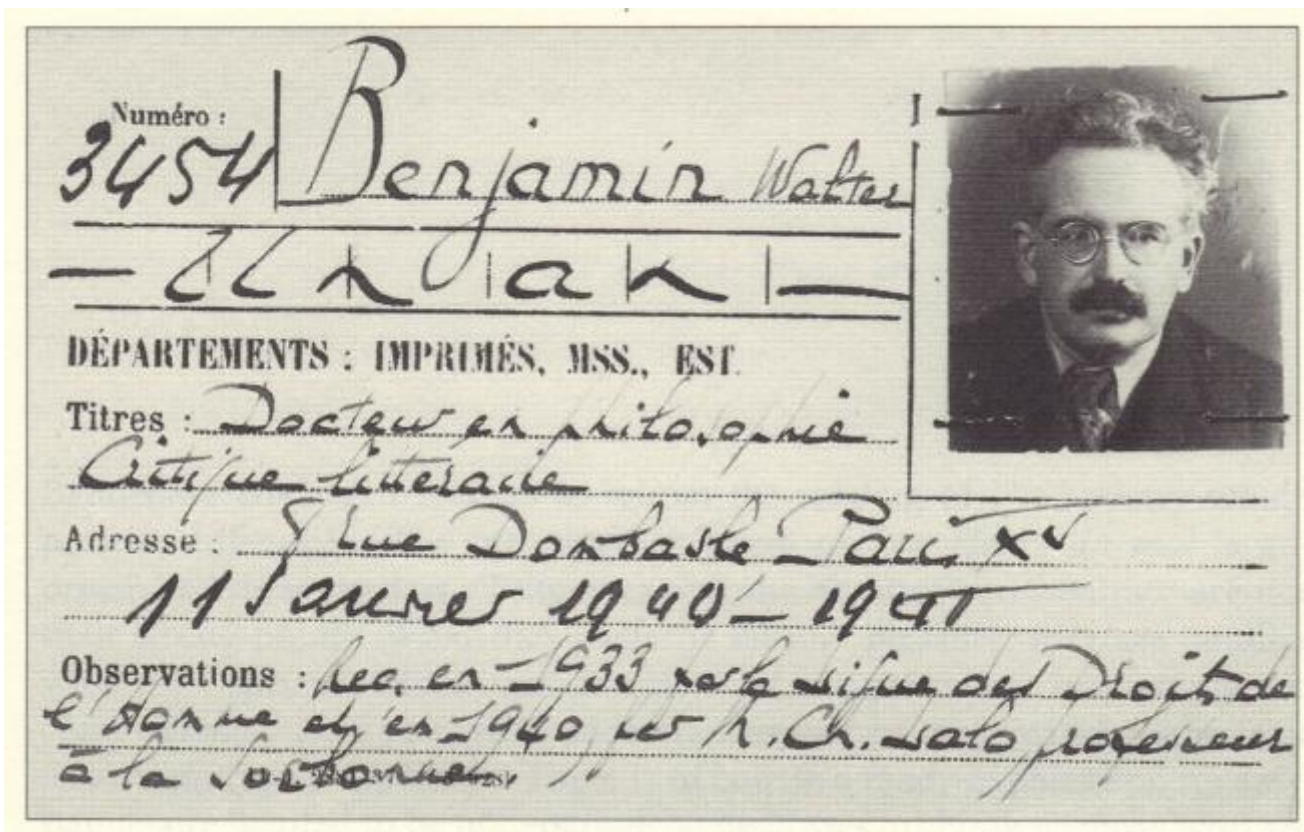 Numéro :
3454
Benjamin Walter
— Un an —
DÉPARTEMENTS : IMPRIMÉS, MSS., EST.
Titres : Docteur en philosophie
Critique littéraire
Adresse : rue Dombasle Paris XV
11 Janvier 1940 – 1941
Observations : Rec. en 1933 par la Ligue des Droits de
l'Homme et en 1940 par M. Ch. Lalo professeur
à la Sorbonne